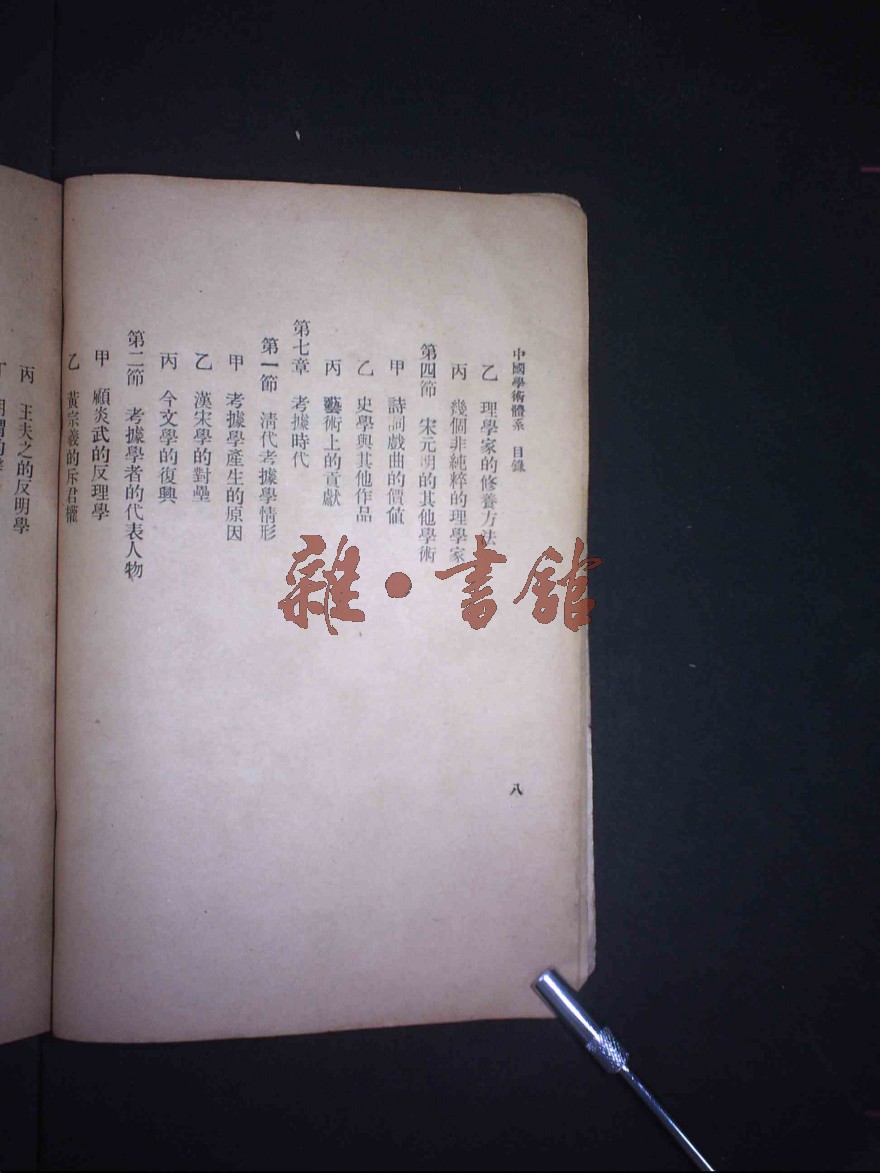 中國學術體系 目錄
八
乙 理學家的修養方法
丙 幾個非純粹的理學家
第四節 宋元明的其他學術
甲 詩詞戲曲的價值
乙 史學與其他作品
丙 藝術上的貢獻
第七章 考據時代
第一節 清代考據學情形
甲 考據學產生的原因
乙 漢宋學的對壘
丙 今文學的復興
第二節 考據學者的代表人物
甲 顧炎武的反理學
乙 黃宗羲的斥君權
丙 王夫之的反明學
雜·書館